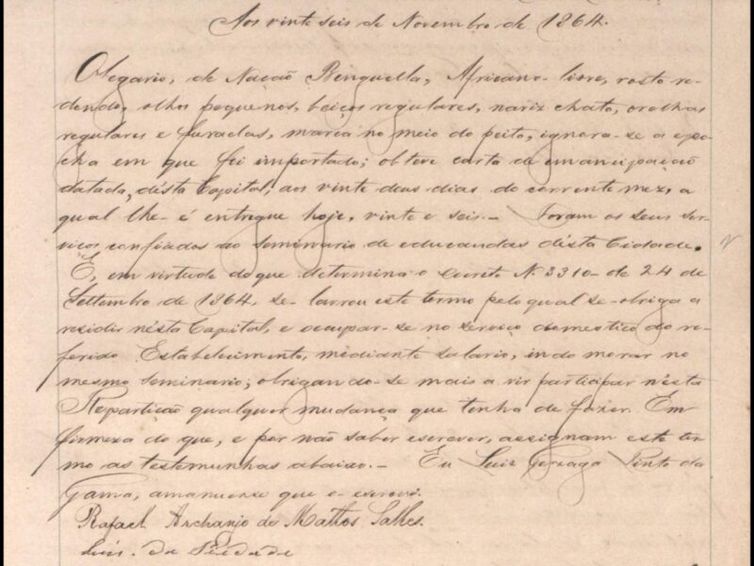 Aos vinte seis de Novembro de 1864.
Olegario, de Nação Benguella, Africano livre, rosto re-
dondo, olhos pequenos, beiços regulares, nariz chato, orelhas
regulares e furadas, marca no meio do peito, ignora-se a epo-
cha em que foi importado; obteve carta de emancipação
datada, désta Capital, aos vinte dous dias do corrente mez, a
qual lhe é entregue hoje, vinte e seis.- Foram os seus ser-
viços confiados ao seminario de educandas désta Cidade.
E, em virtude do que determina o Decreto N. 3310 de 24 de
Settembro de 1864, se lavrou este termo pelo qual se-obriga a
residir nésta Capital, e occupar-se no serviço domestico do re-
ferido Estabelecimento, mediante salario, indo morar no
mesmo seminario; obrigando-se mais a vir participar nésta
Repartição qualquer mudança que tenha de fazer. Em
firmeza do que, e por não saber escrever, assignam este ter-
mo as testemunhas abaixo.- Eu Luiz Gonzaga Pinto da
Gama, amanuense que o escrevi.
Rafael Archanjo de Mattos Salles.
Luis da Piedade